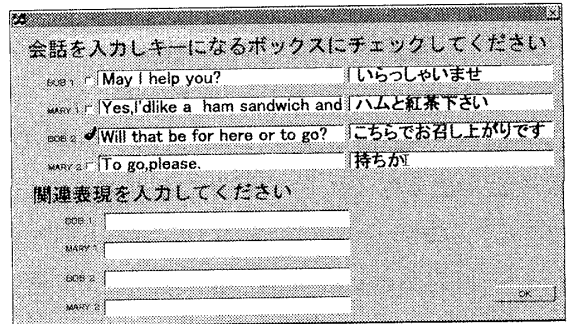 会話を入力しキーになるボックスにチェックしてください
BOB 1 May I help you? いらっしゃいませ
MARY 1 Yes,I'dlike a ham sandwich and ハムと紅茶下さい
BOB 2 Will that be for here or to go? こちらでお召し上がりです
MARY 2 To go,please. 持ちか
関連表現を入力してください
BOB 1
MARY 1
BOB 2
MARY 2
OK